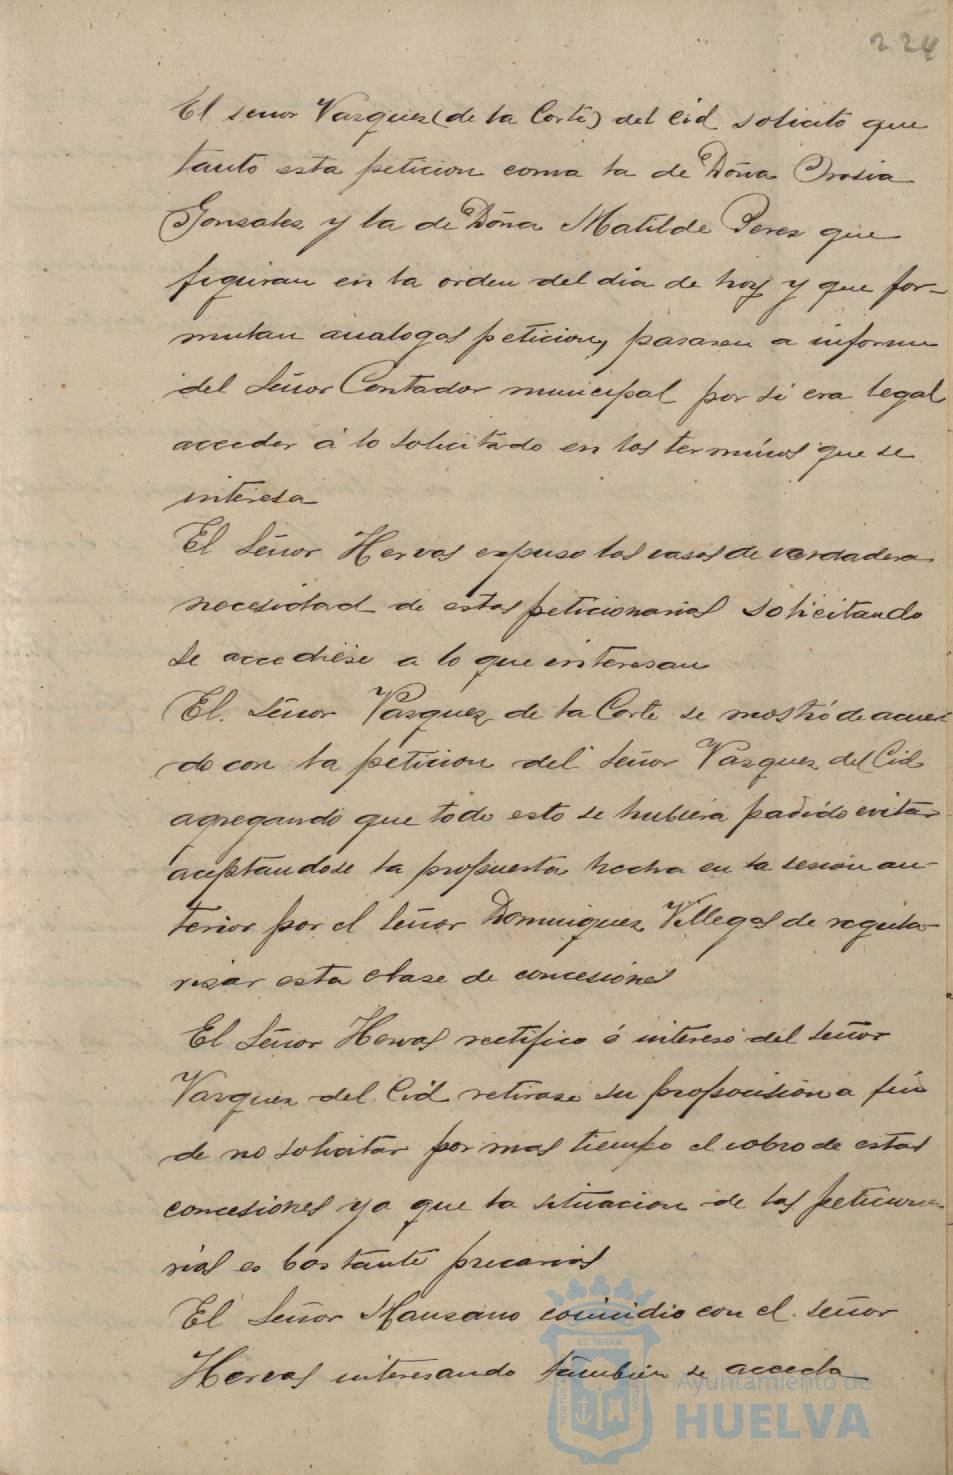 224
El señor Vazquez (de la Corte) del Cid solicitó que
tanto esta peticion como la de Doña Orosia
Gonzalez y la de Doña Matilde Perez que
figuran en la orden del dia de hoy y que for-
mulan analogas peticion, pasasen a informe
del Señor Contador municipal por si era legal
acceder á lo solicitado en los terminos que se
interesa
El Señor Hervas expuso los casos de verdadera
necesidad de estas peticionarias solicitando
se accediese a lo que interesan
El Señor Vazquez de la Corte se mostró de acuer-
do con la peticion del señor Vazquez del Cid
agregando que todo esto se hubiera podido evitar
aceptandose la propuesta hecha en la sesion an-
terior por el Señor Dominguez Villegas de regula-
rizar esta clase de concesiones
El Señor Hervas rectifico é intereso del señor
Vazquez del Cid retirase su proposision a fin
de no solicitar por mas tiempo el cobro de estas
concesiones ya que la situacion de las peticiona-
rias es bastante precarias
El Señor Manzano coincidio con el señor
Hervas interesando tambien se acceda
ET TERRÆ
Ayuntamiento de
HUELVA